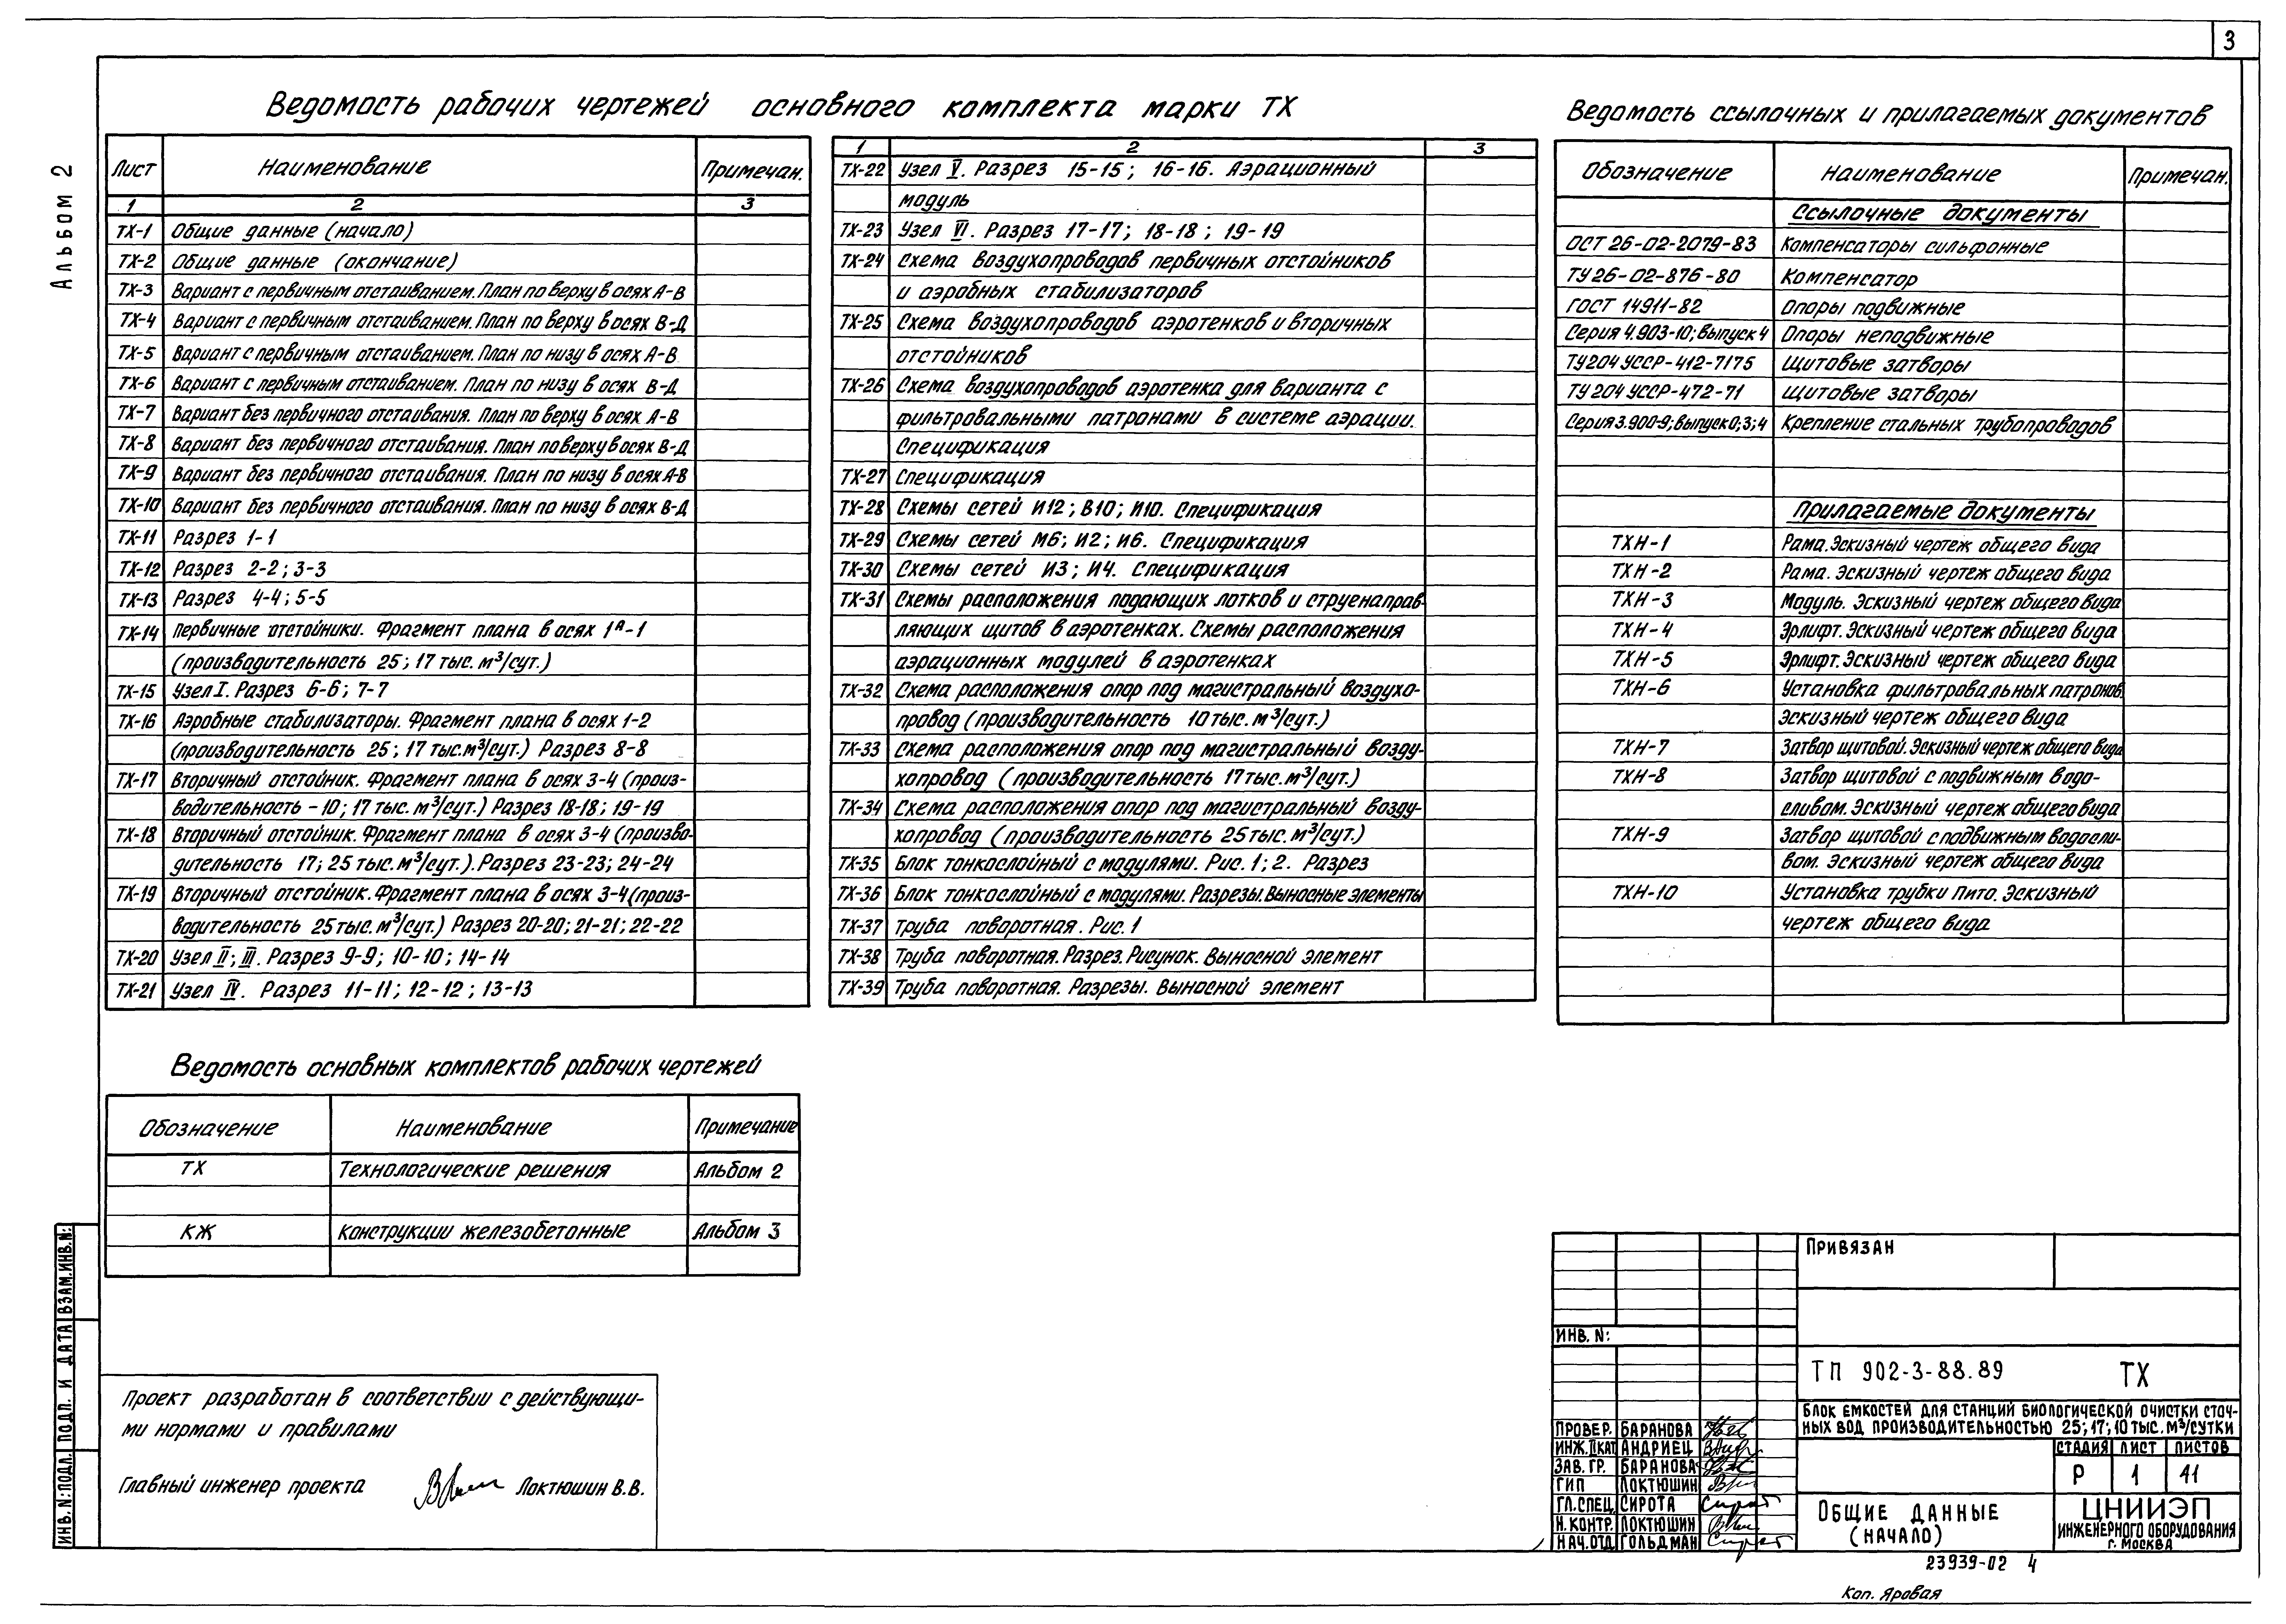 3
Альбом 2
Ведомость рабочих чертежей основного комплекта марки ТХ
Лист Наименование Примечан.
1 2 3
ТХ-1 Общие данные (начало)
ТХ-2 Общие данные (окончание)
ТХ-3 Вариант с первичным отстаиванием. План по верху в осях А-В
ТХ-4 Вариант с первичным отстаиванием. План по верху в осях В-Д
ТХ-5 Вариант с первичным отстаиванием. План по низу в осях А-В
ТХ-6 Вариант с первичным отстаиванием. План по низу в осях В-Д
ТХ-7 Вариант без первичного отстаивания. План по верху в осях А-В
ТХ-8 Вариант без первичного отстаивания. План по верху в осях В-Д
ТХ-9 Вариант без первичного отстаивания. План по низу в осях А-В
ТХ-10 Вариант без первичного отстаивания. План по низу в осях В-Д
ТХ-11 Разрез 1-1
ТХ-12 Разрез 2-2; 3-3
ТХ-13 Разрез 4-4; 5-5
ТХ-14 Первичные отстойники. Фрагмент плана в осях 1ᴬ-1
(производительность 25; 17 тыс. м³/сут.)
ТХ-15 Узел I. Разрез 6-6; 7-7
ТХ-16 Аэробные стабилизаторы. Фрагмент плана в осях 1-2
(производительность 25; 17 тыс. м³/сут.) Разрез 8-8
ТХ-17 Вторичный отстойник. Фрагмент плана в осях 3-4 (произ-
водительность - 10; 17 тыс. м³/сут.) Разрез 18-18; 19-19
ТХ-18 Вторичный отстойник. Фрагмент плана в осях 3-4 (произво-
дительность 17; 25 тыс. м³/сут.). Разрез 23-23; 24-24
ТХ-19 Вторичный отстойник. Фрагмент плана в осях 3-4 (произ-
водительность 25 тыс. м³/сут.) Разрез 20-20; 21-21; 22-22
ТХ-20 Узел II; III. Разрез 9-9; 10-10; 14-14
ТХ-21 Узел IV. Разрез 11-11; 12-12; 13-13
1 2 3
ТХ-22 Узел V. Разрез 15-15; 16-16. Аэрационный
модуль
ТХ-23 Узел VI. Разрез 17-17; 18-18; 19-19
ТХ-24 Схема воздухопроводов первичных отстойников
и аэробных стабилизаторов
ТХ-25 Схема воздухопроводов аэротенков и вторичных
отстойников
ТХ-26 Схема воздухопроводов аэротенка для варианта с
фильтровальными патронами в системе аэрации.
Спецификация
ТХ-27 Спецификация
ТХ-28 Схемы сетей И12; В10; И10. Спецификация
ТХ-29 Схемы сетей М6; И2; И6. Спецификация
ТХ-30 Схемы сетей И3; И4. Спецификация
ТХ-31 Схемы расположения подающих лотков и струенаправ-
ляющих щитов в аэротенках. Схемы расположения
аэрационных модулей в аэротенках
ТХ-32 Схема расположения опор под магистральный воздухо-
провод (производительность 10 тыс. м³/сут.)
ТХ-33 Схема расположения опор под магистральный возду-
хопровод (производительность 17 тыс. м³/сут.)
ТХ-34 Схема расположения опор под магистральный возду-
хопровод (производительность 25 тыс. м³/сут.)
ТХ-35 Блок тонкослойный с модулями. Рис. 1; 2. Разрез
ТХ-36 Блок тонкослойный с модулями. Разрезы. Выносные элементы
ТХ-37 Труба поворотная. Рис. 1
ТХ-38 Труба поворотная. Разрез. Рисунок. Выносной элемент
ТХ-39 Труба поворотная. Разрезы. Выносной элемент
Ведомость ссылочных и прилагаемых документов
Обозначение Наименование Примечан.
Ссылочные документы
ОСТ 26-02-2079-83 Компенсаторы сильфонные
ТУ 26-02-876-80 Компенсатор
ГОСТ 14911-82 Опоры подвижные
Серия 4.903-10; выпуск 4 Опоры неподвижные
ТУ 204 УССР-412-7175 Щитовые затворы
ТУ 204 УССР-472-71 Щитовые затворы
Серия 3.900-9; выпуск 0; 3; 4 Крепление стальных трубопроводов
Прилагаемые документы
ТХН-1 Рама. Эскизный чертеж общего вида
ТХН-2 Рама. Эскизный чертеж общего вида
ТХН-3 Модуль. Эскизный чертеж общего вида
ТХН-4 Эрлифт. Эскизный чертеж общего вида
ТХН-5 Эрлифт. Эскизный чертеж общего вида
ТХН-6 Установка фильтровальных патронов.
Эскизный чертеж общего вида
ТХН-7 Затвор щитовой. Эскизный чертеж общего вида
ТХН-8 Затвор щитовой с подвижным водо-
сливом. Эскизный чертеж общего вида
ТХН-9 Затвор щитовой с подвижным водосли-
вом. Эскизный чертеж общего вида
ТХН-10 Установка трубки Пито. Эскизный
чертеж общего вида
Ведомость основных комплектов рабочих чертежей
Обозначение Наименование Примечание
ТХ Технологические решения Альбом 2
КЖ Конструкции железобетонные Альбом 3
Проект разработан в соответствии с действующи-
ми нормами и правилами
Главный инженер проекта Локтюшин В.В.
ИНВ. N: ПОДЛ. ПОДП. И ДАТА ВЗАМ. ИНВ. N:
ПРИВЯЗАН
ИНВ. N:
ТП 902-3-88.89 ТХ
БЛОК ЕМКОСТЕЙ ДЛЯ СТАНЦИЙ БИОЛОГИЧЕСКОЙ ОЧИСТКИ СТОЧ-
НЫХ ВОД ПРОИЗВОДИТЕЛЬНОСТЬЮ 25; 17; 10 ТЫС. М³/СУТКИ
ПРОВЕР. БАРАНОВА
ИНЖ. IКАТ АНДРИЕЦ
ЗАВ. ГР. БАРАНОВА
ГИП ЛОКТЮШИН
ГЛ. СПЕЦ. СИРОТА
Н. КОНТР. ЛОКТЮШИН
НАЧ. ОТД ГОЛЬДМАН
СТАДИЯ ЛИСТ ЛИСТОВ
Р 1 41
ОБЩИЕ ДАННЫЕ
(НАЧАЛО)
ЦНИИЭП
ИНЖЕНЕРНОГО ОБОРУДОВАНИЯ
Г. МОСКВА
23939-02 4
Коп. Яровая